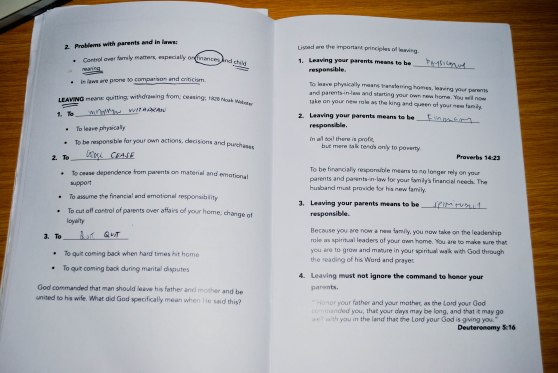 2. Problems with parents and in laws:
• Control over family matters, especially on finances and child
rearing
• In laws are prone to comparison and criticism.
LEAVING means: quitting; withdrawing from; ceasing; 1828 Noah Webster
1. To WITHDRAW
• To leave physically
• To be responsible for your own actions, decisions and purchases
2. To CEASE
• To cease dependence from parents on material and emotional
support
• To assume the financial and emotional responsibility
• To cut off control of parents over affairs of your home; change of
loyalty
3. To QUIT
• To quit coming back when hard times hit home
• To quit coming back during marital disputes
God commanded that man should leave his father and mother and be
united to his wife. What did God specifically mean when He said this?
Listed are the important principles of leaving.
1. Leaving your parents means to be PHYSICALLY
responsible.
To leave physically means transferring homes, leaving your parents
and parents-in-law and starting your own new home. You will now
take on your new role as the king and queen of your new family.
2. Leaving your parents means to be
responsible.
In all toil there is profit,
but mere talk tends only to poverty.
Proverbs 14:23
To be financially responsible means to no longer rely on your
parents and parents-in-law for your family's financial needs. The
husband must provide for his new family.
3. Leaving your parents means to be SPIRITUALLY
responsible.
Because you are now a new family, you now take on the leadership
role as spiritual leaders of your own home. You are to make sure that
you are to grow and mature in your spiritual walk with God through
the reading of His Word and prayer.
4. Leaving must not ignore the command to honor your
parents.
"Honor your father and your mother, as the Lord your God
commanded you, that your days may be long, and that it may go
well with you in the land that the Lord your God is giving you."
Deuteronomy 5:16